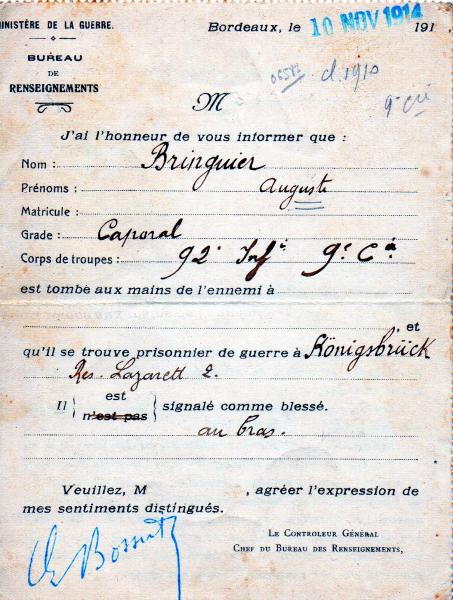 MINISTÈRE DE LA GUERRE.
Bordeaux, le 10 NOV 1914 191
BUREAU
DE
RENSEIGNEMENTS
cl. 1910
9e Cie
M
J'ai l'honneur de vous informer que :
Nom : Bringuier
Prénoms : Auguste
Matricule :
Grade : Caporal
Corps de troupes : 92e Infie 9e Cie
est tombé aux mains de l'ennemi à
, et
qu'il se trouve prisonnier de guerre à Königsbrück
Res. Lazarett 2.
est
Il } n'est pas } signalé comme blessé.
au bras.
Veuillez, M , agréer l'expression de
mes sentiments distingués.
LE CONTROLEUR GÉNÉRAL
CHEF DU BUREAU DES RENSEIGNEMENTS,